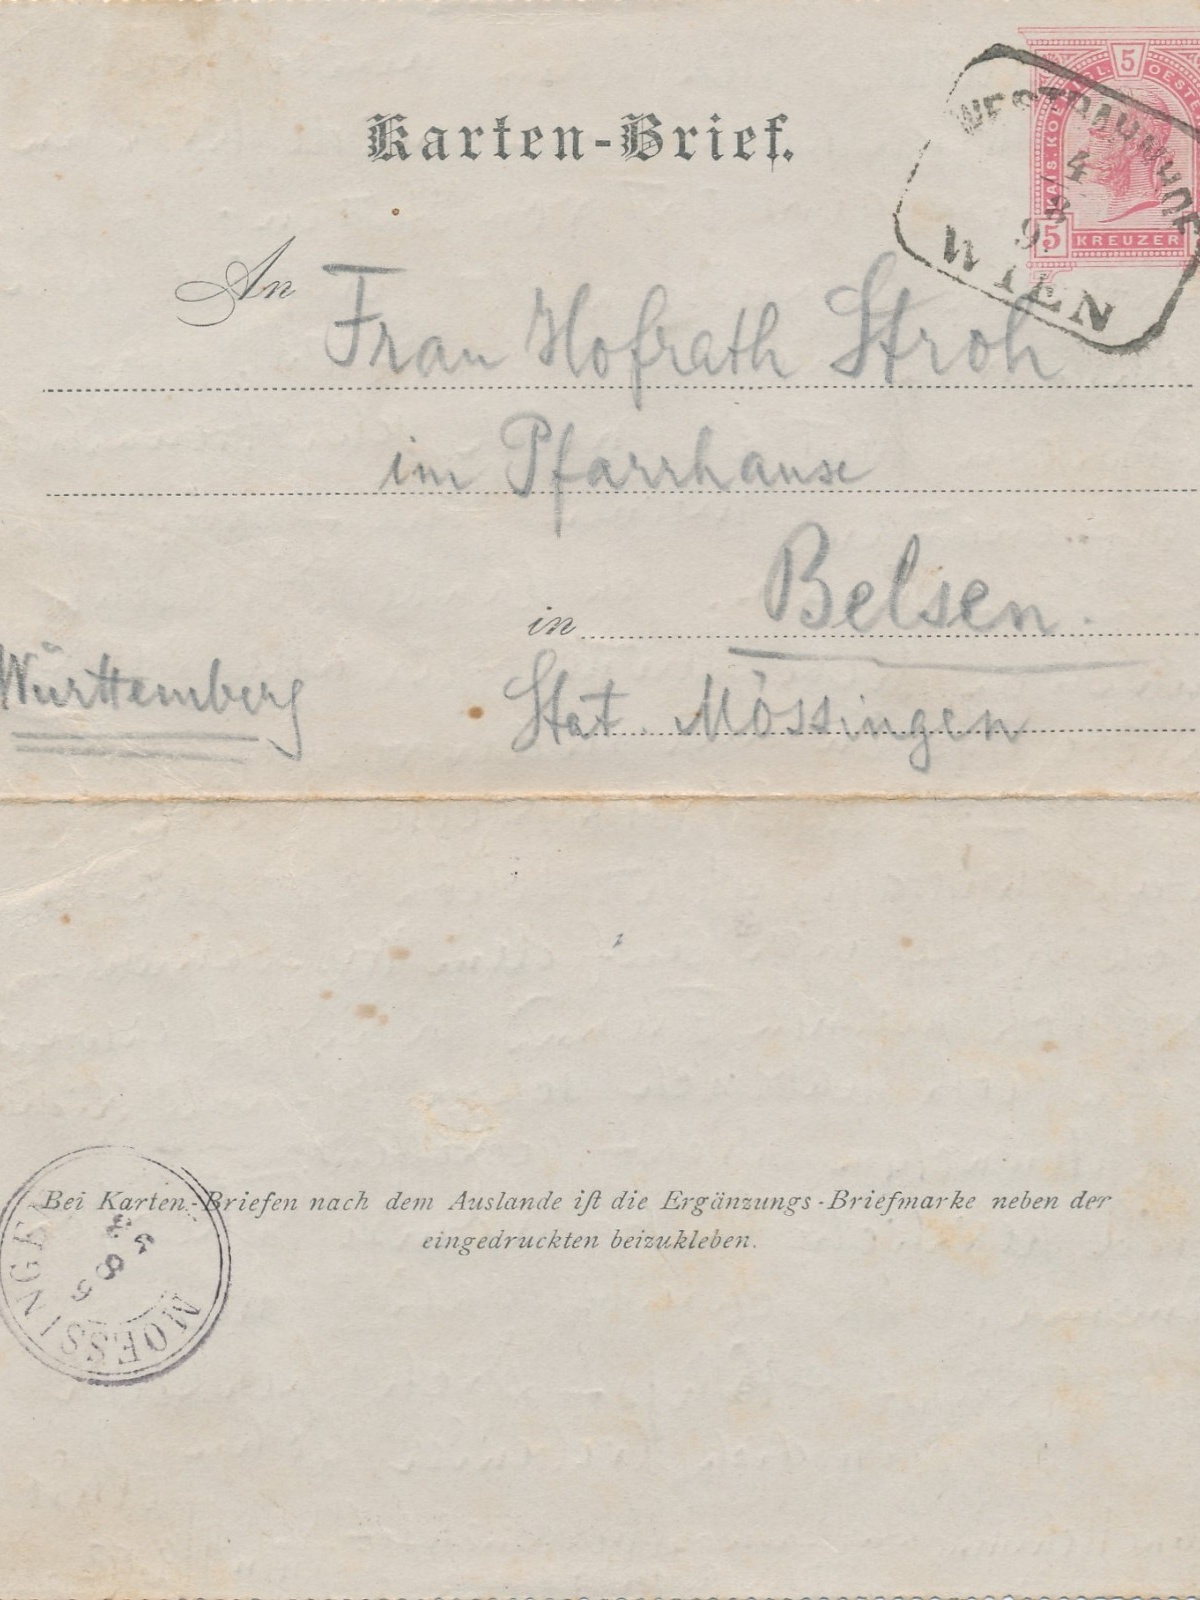 Karten-Brief.
5
KAIS. KOENIGL. OESTERR.
5 KREUZER
WESTBAHNHOF
4
8
9
WIEN
An Frau Hofrath Stroh
im Pfarrhause
in Belsen.
Württemberg Stat. Mössingen
Bei Karten-Briefen nach dem Auslande iſt die Ergänzungs-Briefmarke neben der
eingedruckten beizukleben.
MOESSINGEN
8